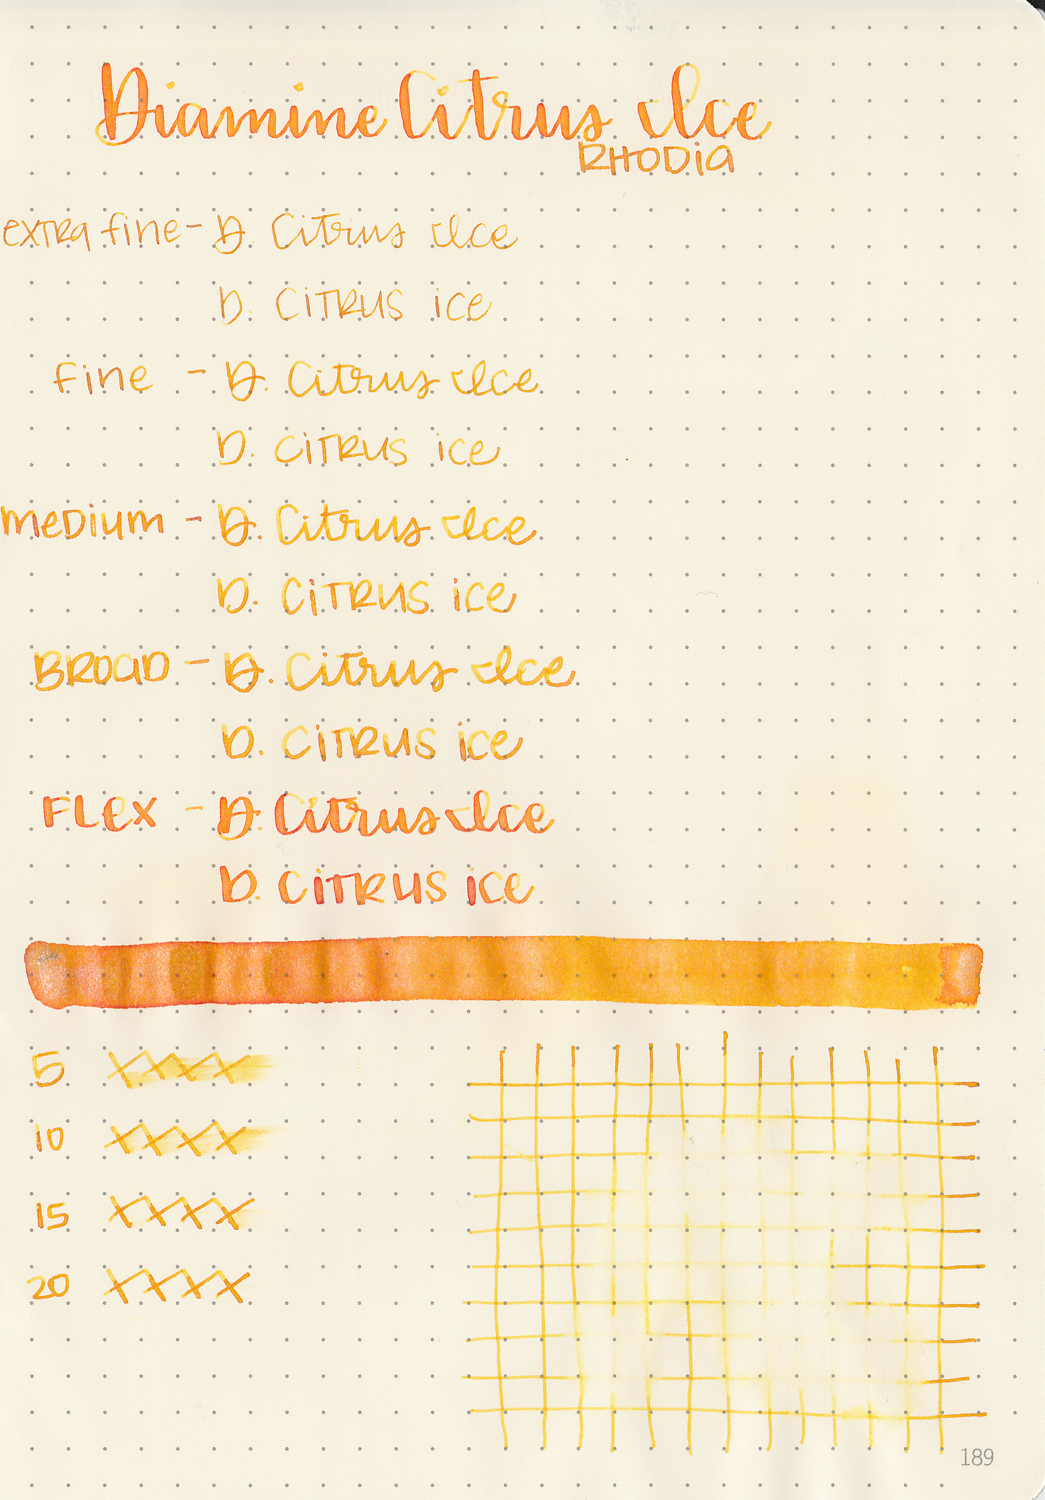 Diamine Citrus Ice
RHODIA
extra fine - D. Citrus Ice
D. CiTRUS ice
fine - D. Citrus Ice
D. CiTRUS ice
meDium - D. Citrus Ice
D. CiTRUS ice
BROAD - D. Citrus Ice
D. CiTRUS ice
FLEX - D. Citrus Ice
D. CiTRUS ice
5 XXXX
10 XXXX
15 XXXX
20 XXXX
189